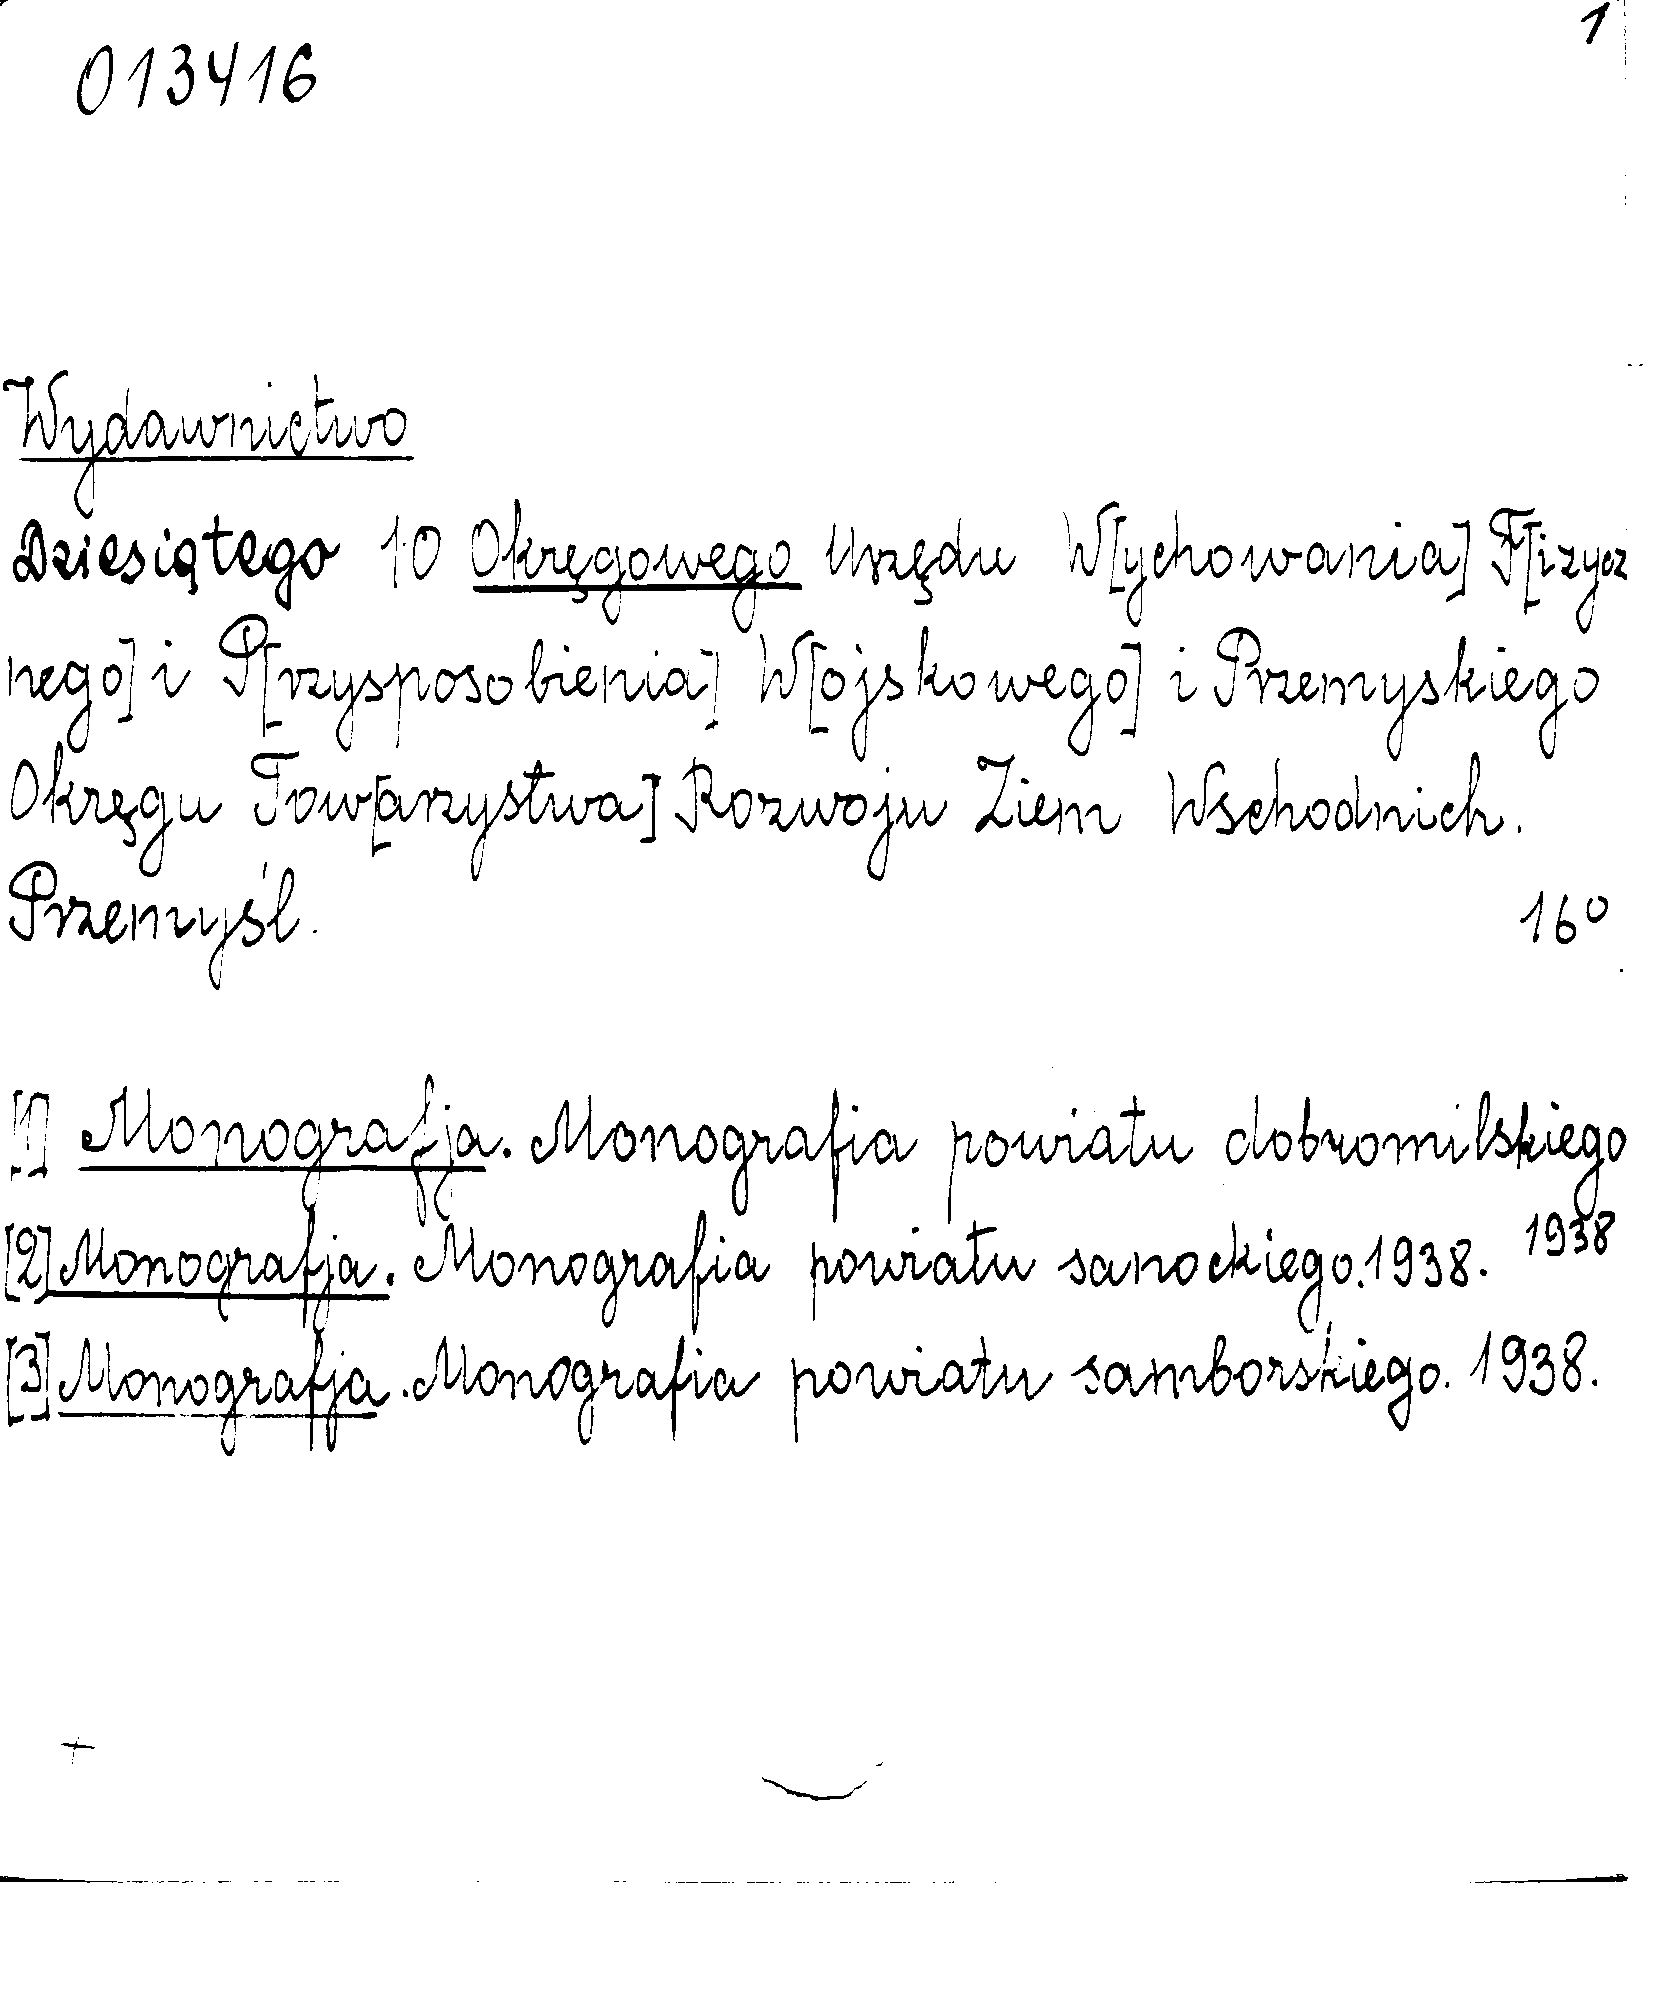 1
013416
Wydawnictwo
Dziesiątego 10 Okręgowego Urzędu W[ychowania] F[izycz
nego] i P[rzysposobienia] W[ojskowego] i Przemyskiego
Okręgu Tow[arzystwa] Rozwoju Ziem Wschodnich.
Przemyśl. 16°
[1] Monografja. Monografia powiatu dobromilskiego
1938
[2] Monografja. Monografia powiatu sanockiego. 1938.
[3] Monografja. Monografia powiatu samborskiego. 1938.